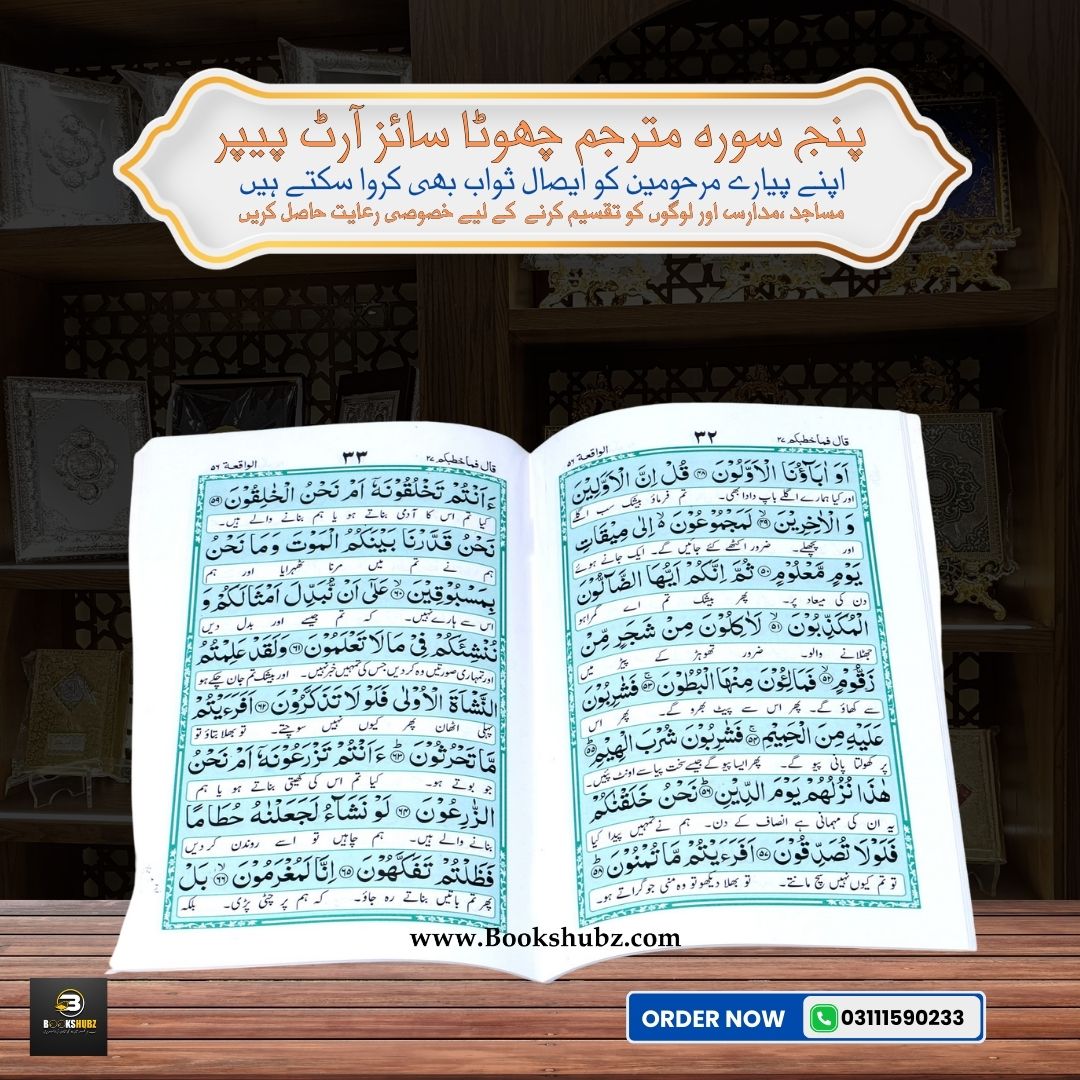 پنج سورہ مترجم چھوٹا سائز آرٹ پیپر
اپنے پیارے مرحومین کو ایصال ثواب بھی کروا سکتے ہیں
مساجد ،مدارس اور لوگوں کو تقسیم کرنے کے لیے خصوصی رعایت حاصل کریں
قال فماخطبکم ۲۷
۳۲
الواقعة ۵۶
اَوَ اٰبَآؤُنَا الْاَوَّلُوْنَ ۴۸ قُلْ اِنَّ الْاَوَّلِیْنَ
اور کیا ہمارے اگلے باپ دادا بھی۔ تم فرماؤ بیشک سب اگلے
وَ الْاٰخِرِیْنَ ۴۹ لَمَجْمُوْعُوْنَ ۙ۬ اِلٰی مِیْقَاتِ
اور پچھلے۔ ضرور اکٹھے کئے جائیں گے۔ ایک جانے ہوئے
یَوْمٍ مَّعْلُوْمٍ ۵۰ ثُمَّ اِنَّكُمْ اَیُّهَا الضَّآلُّوْنَ
دن کی میعاد پر۔ پھر بیشک تم اے گمراہو
الْمُكَذِّبُوْنَ ۵۱ لَاٰكِلُوْنَ مِنْ شَجَرٍ مِّنْ
جھٹلانے والو۔ ضرور تھوہڑ کے پیڑ میں
زَقُّوْمٍ ۵۲ فَمَالِـُٔوْنَ مِنْهَا الْبُطُوْنَ ۵۳ فَشٰرِبُوْنَ
سے کھاؤ گے۔ پھر اس سے پیٹ بھرو گے۔ پھر اس
عَلَیْهِ مِنَ الْحَمِیْمِ ۵۴ فَشٰرِبُوْنَ شُرْبَ الْهِیْمِ ۵۵
پر کھولتا پانی پیو گے۔ پھر ایسا پیو گے جیسے سخت پیاسے اونٹ پئیں۔
هٰذَا نُزُلُهُمْ یَوْمَ الدِّیْنِ ۵۶ نَحْنُ خَلَقْنٰكُمْ
یہ ان کی مہمانی ہے انصاف کے دن۔ ہم نے تمہیں پیدا کیا
فَلَوْلَا تُصَدِّقُوْنَ ۵۷ اَفَرَءَیْتُمْ مَّا تُمْنُوْنَ ۵۸
تو تم کیوں نہیں سچ مانتے۔ تو بھلا دیکھو تو وہ منی جو گراتے ہو۔
قال فماخطبکم ۲۷
۳۳
الواقعة ۵۶
ءَاَنْتُمْ تَخْلُقُوْنَهٗۤ اَمْ نَحْنُ الْخٰلِقُوْنَ ۵۹
کیا تم اس کا آدمی بناتے ہو یا ہم بنانے والے ہیں۔
نَحْنُ قَدَّرْنَا بَیْنَكُمُ الْمَوْتَ وَمَا نَحْنُ
ہم نے تم میں مرنا ٹھہرایا اور ہم
بِمَسْبُوْقِیْنَ ۶۰ عَلٰۤی اَنْ نُّبَدِّلَ اَمْثَالَكُمْ وَ
اس سے ہارے نہیں۔ کہ تم جیسے اور بدل دیں
نُنْشِئَكُمْ فِیْ مَا لَا تَعْلَمُوْنَ ۶۱ وَلَقَدْ عَلِمْتُمُ
اور تمہاری صورتیں وہ کر دیں جس کی تمہیں خبر نہیں۔ اور بیشک تم جان چکے ہو
النَّشْاَةَ الْاُوْلٰی فَلَوْ لَا تَذَكَّرُوْنَ ۶۲ اَفَرَءَیْتُمْ
پہلی اٹھان پھر کیوں نہیں سوچتے۔ تو بھلا بتاؤ تو
مَّا تَحْرُثُوْنَ ۶۳ ءَاَنْتُمْ تَزْرَعُوْنَهٗۤ اَمْ نَحْنُ
جو بوتے ہو۔ کیا تم اس کی کھیتی بناتے ہو یا ہم
الزّٰرِعُوْنَ ۶۴ لَوْ نَشَآءُ لَجَعَلْنٰهُ حُطَامًا
بنانے والے ہیں۔ ہم چاہیں تو اسے روندن کر دیں
فَظَلْتُمْ تَفَكَّهُوْنَ ۶۵ اِنَّا لَمُغْرَمُوْنَ ۶۶ بَلْ
پھر تم باتیں بناتے رہ جاؤ۔ کہ ہم پر چٹی پڑی۔ بلکہ
www.Bookshubz.com
BOOKSHUBZ
ORDER NOW
03111590233